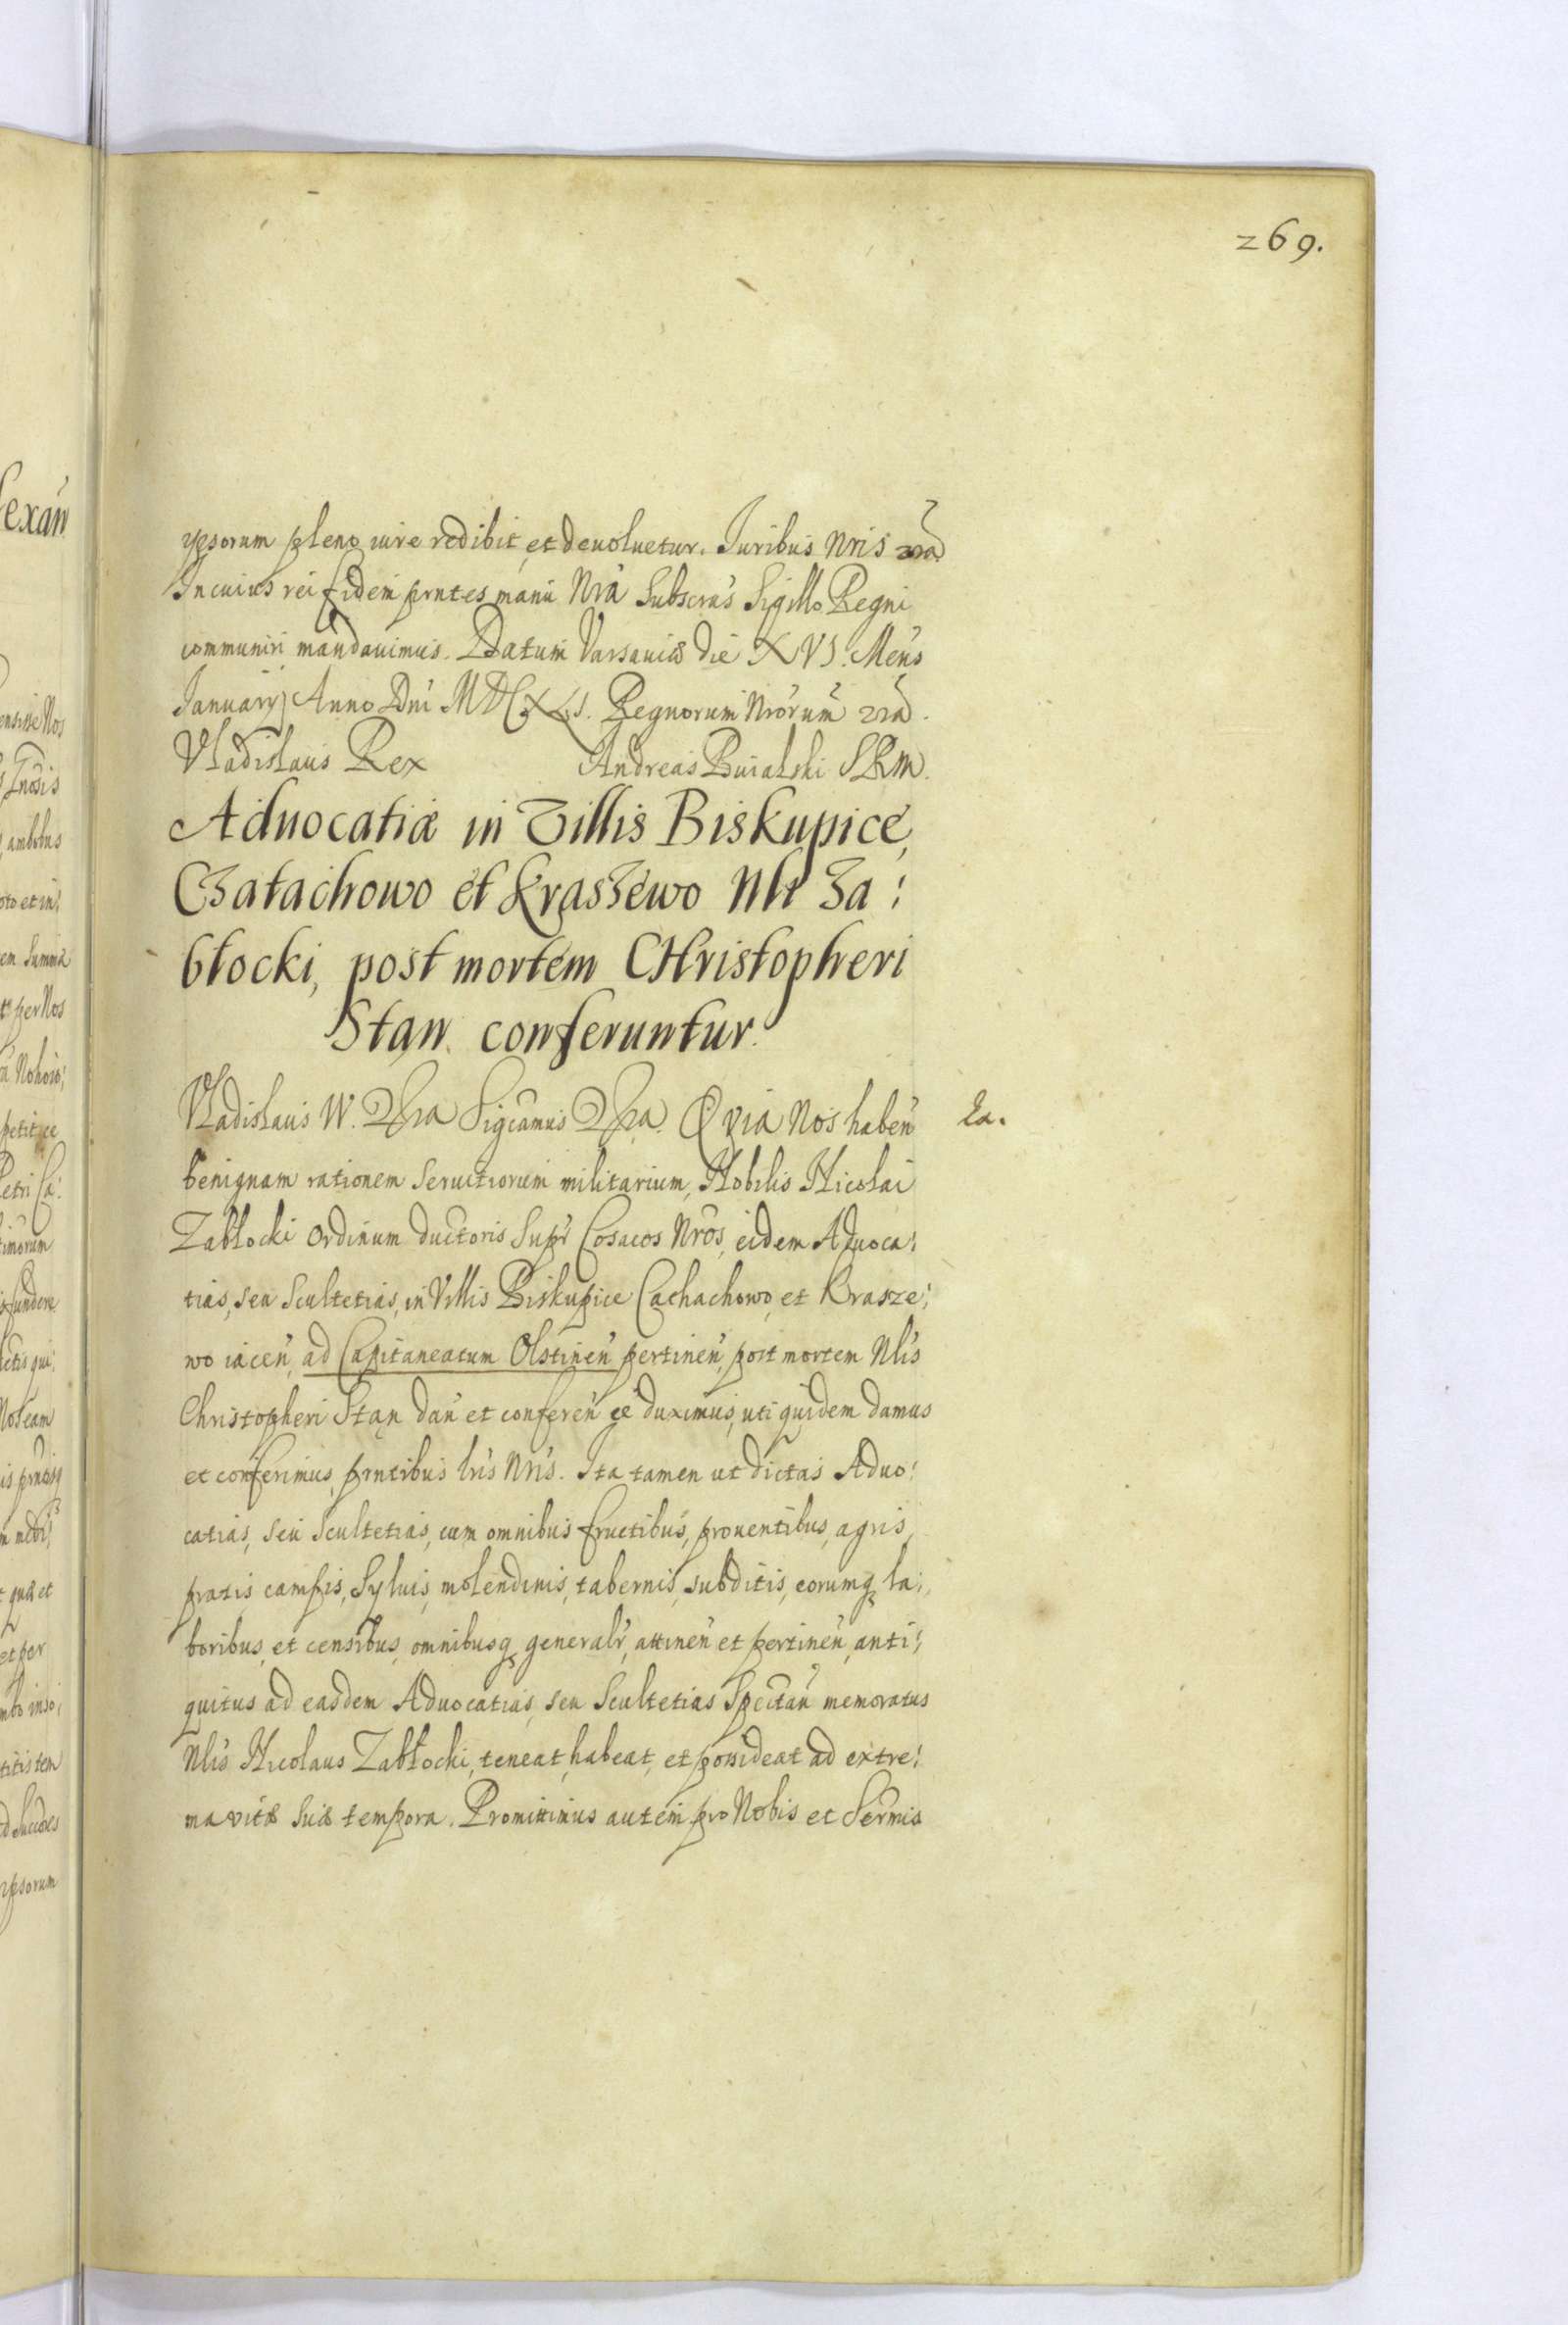 269.
ypsorum pleno iure redibit, et deuoluetur. Juribus Nris
In cuius rei fidem prntes manu Nra Subscras Sigillo Regni
communiri mandauimus. Datum Varsauiæ die XVI. Mens
Januarij Anno Dni MDCXLI. Regnorum Nrorum
Vladislaus Rex Andreas Buialski SRM.
Aduocatiæ in Villis Biskupice,
Czatachowo et Kraszewo Nli Za:
błocki, post mortem CHristopheri
Stąn conferuntur.
Vladislaus IV. Sigcamus Qvia Nos haben
benignam rationem Seruitiorum militarium, Nobilis Nicolai
Zabłocki Ordinum ductoris Supr Cosacos Nros, eidem Aduoca:
tias, seu Scultetias, in Villis Biskupice Cachachowo, et Krasze:
wo iacen, ad Capitaneatum Olstinen pertinen, post mortem Nlis
Christopheri Stąn dan et conferen ee duximus, uti quidem damus
et conferimus, prntibus lris Nris. Ita tamen ut dictas Aduo:
catias, seu Scultetias, cum omnibus fructibus, prouentibus, agris,
pratis campis, Syluis, molendinis, tabernis, subditis, eorumq, la:
boribus, et censibus, omnibusq, generalr, attinen et pertinen, anti:
quitus ad easdem Aduocatias, seu Scultetias Spectan memoratus
Nlis Nicolaus Zabłocki, teneat, habeat, et possideat ad extre:
ma vitæ Suæ tempora. Promittimus autem pro Nobis et Sermis